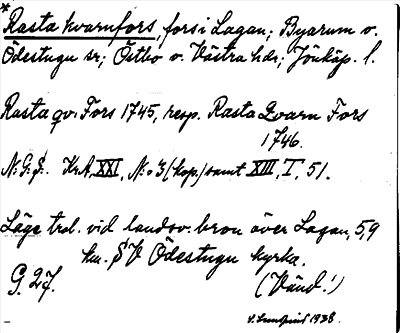 * Rasta kvarnfors, fors i Lagan; Byarum o.
Ödestugu sr; Östbo o. Västra hdr; Jönköp. l.
Rasta qv. Fors 1745, resp. Rasta Qvarn Fors
1746.
N:G:g:. Kr.A, XXI, N:o 3 (kop.) samt XIII, I, 51.
Läge trol. vid landsv. bron över Lagan, 5,9
km. SV Ödestugu kyrka.
G. 27. (Vänd!)
1938